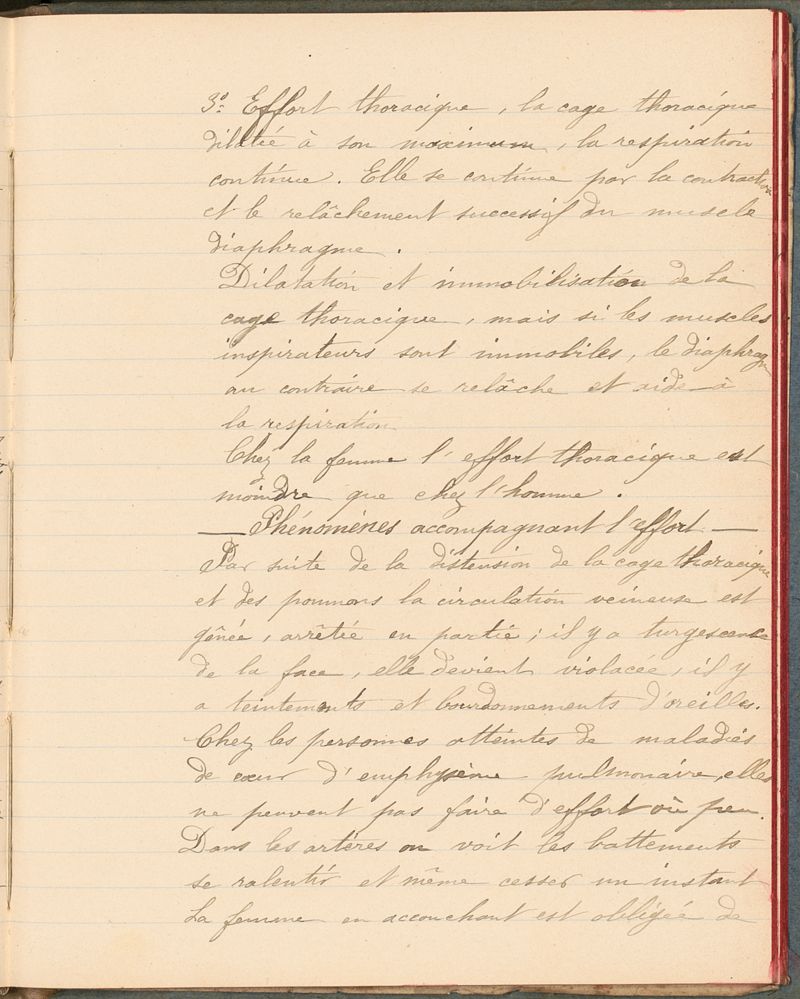 3º Effort thoracique, la cage thoracique
dilatée à son maximum, la respiration
continue. Elle se continue par la contraction
et le relâchement successif du muscle
diaphragme.
Dilatation et immobilisation de la
cage thoracique, mais si les muscles
inspirateurs sont immobiles, le diaphragme
au contraire se relâche et aide à
la respiration
Chez la femme l'effort thoracique est
moindre que chez l'homme.
— Phénomènes accompagnant l'effort —
Par suite de la distension de la cage thoracique
et des poumons la circulation veineuse est
gênée, arrêtée en partie; il y a turgescence
de la face, elle devient violacée, il y
a teintements et bourdonnements d'oreilles.
Chez les personnes atteintes de maladies
de cœur d'emphysème pulmonaire, elles
ne peuvent pas faire d'effort où peu.
Dans les artères on voit les battements
se ralentir et même cesser un instant
La femme en accouchant est obligée de